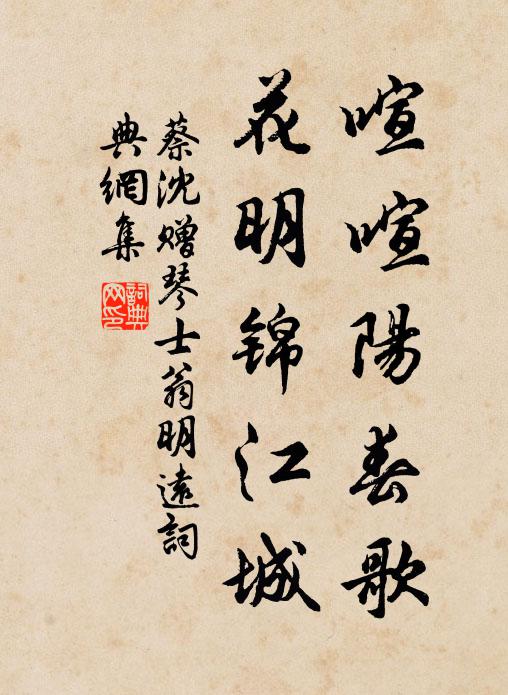 喧喧陽春歌
花明錦江城
蔡沈贈琴士翁明遠詞
典網集
詞典網印